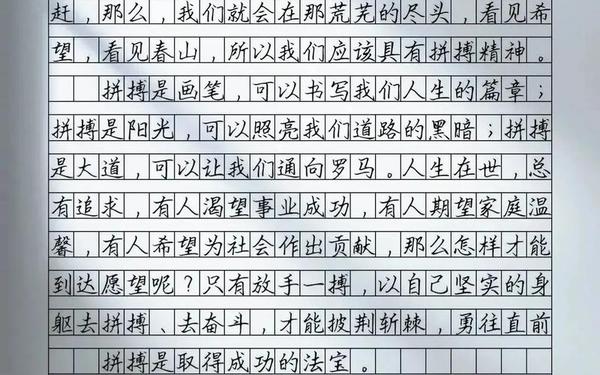 赶，那么，我们就会在那荒芜的尽头，看见希
望，看见春山，所以我们应该具有拼搏精神。
拼搏是画笔，可以书写我们人生的篇章；
拼搏是阳光，可以照亮我们道路的黑暗；拼搏
是大道，可以让我们通向罗马。人生在世，总
有追求，有人渴望事业成功，有人期望家庭温
馨，有人希望为社会作出贡献，那么怎样才能
到达愿望呢？只有放手一搏，以自己坚实的身
躯去拼搏、去奋斗，才能披荆斩棘，勇往直前
拼搏是取得成功的法宝。